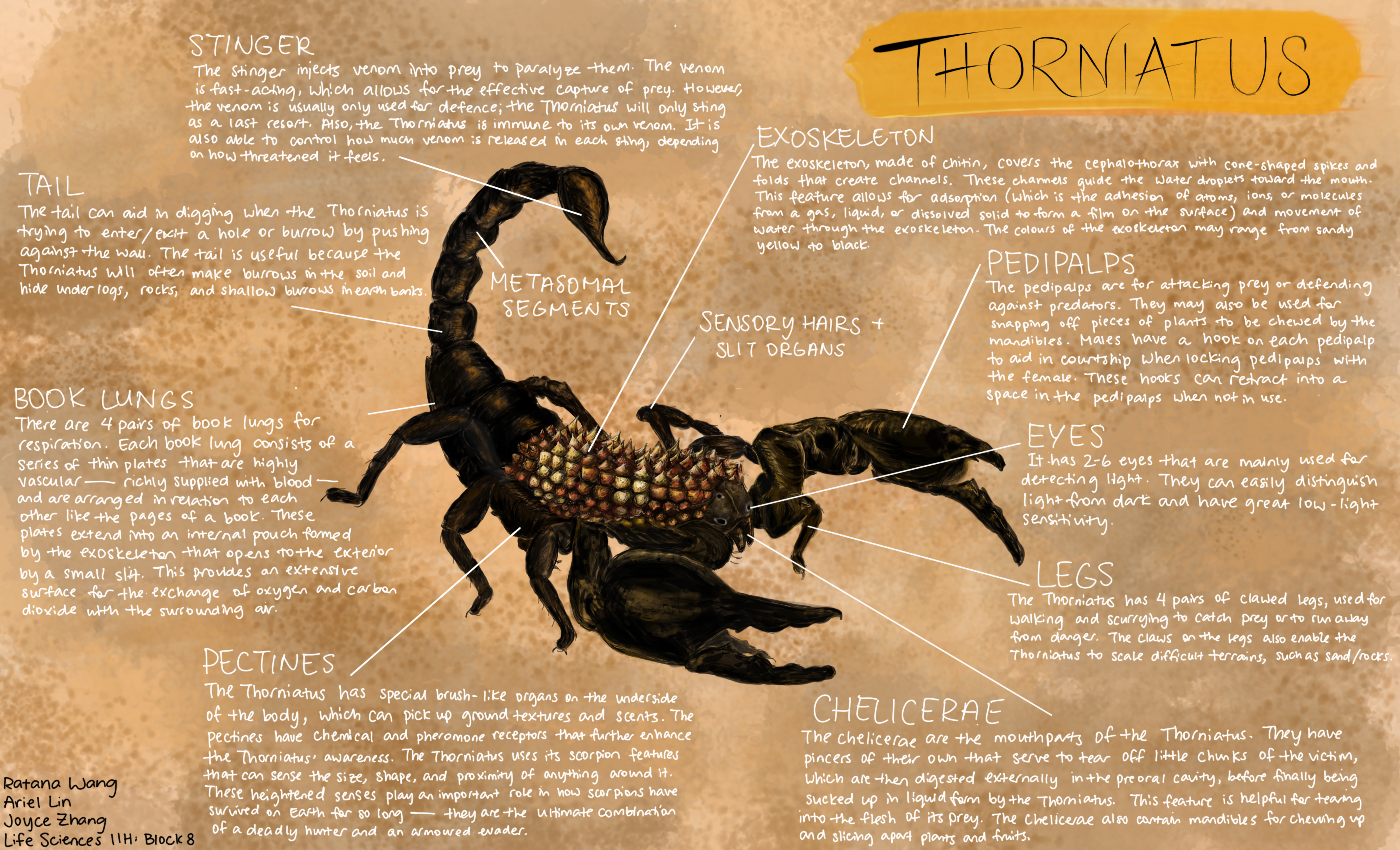 THORNIATUS
STINGER
The stinger injects venom into prey to paralyze them. The venom
is fast-acting, which allows for the effective capture of prey. However,
the venom is usually only used for defence; the Thorniatus will only sting
as a last resort. Also, the Thorniatus is immune to its own venom. It is
also able to control how much venom is released in each sting, depending
on how threatened it feels.
TAIL
The tail can aid in digging when the Thorniatus is
trying to enter/exit a hole or burrow by pushing
against the wall. The tail is useful because the
Thorniatus will often make burrows in the soil and
hide under logs, rocks, and shallow burrows in earth banks.
METASOMAL
SEGMENTS
EXOSKELETON
The exoskeleton, made of chitin, covers the cephalothorax with cone-shaped spikes and
folds that create channels. These channels guide the water droplets toward the mouth.
This feature allows for adsorption (which is the adhesion of atoms, ions, or molecules
from a gas, liquid, or dissolved solid to form a film on the surface) and movement of
water through the exoskeleton. The colours of the exoskeleton may range from sandy
yellow to black.
SENSORY HAIRS +
SLIT ORGANS
PEDIPALPS
The pedipalps are for attacking prey or defending
against predators. They may also be used for
snapping off pieces of plants to be chewed by the
mandibles. Males have a hook on each pedipalp
to aid in courtship when locking pedipalps with
the female. These hooks can retract into a
space in the pedipalps when not in use.
BOOK LUNGS
There are 4 pairs of book lungs for
respiration. Each book lung consists of a
series of thin plates that are highly
vascular — richly supplied with blood —
and are arranged in relation to each
other like the pages of a book. These
plates extend into an internal pouch formed
by the exoskeleton that opens to the exterior
by a small slit. This provides an extensive
surface for the exchange of oxygen and carbon
dioxide with the surrounding air.
EYES
It has 2-6 eyes that are mainly used for
detecting light. They can easily distinguish
light from dark and have great low-light
sensitivity.
LEGS
The Thorniatus has 4 pairs of clawed legs, used for
walking and scurrying to catch prey or to run away
from danger. The claws on the legs also enable the
Thorniatus to scale difficult terrains, such as sand/rocks.
PECTINES
The Thorniatus has special brush-like organs on the underside
of the body, which can pick up ground textures and scents. The
pectines have chemical and pheromone receptors that further enhance
the Thorniatus' awareness. The Thorniatus uses its scorpion features
that can sense the size, shape, and proximity of anything around it.
These heightened senses play an important role in how scorpions have
survived on Earth for so long — they are the ultimate combination
of a deadly hunter and an armoured evader.
CHELICERAE
The chelicerae are the mouthparts of the Thorniatus. They have
pincers of their own that serve to tear off little chunks of the victim,
which are then digested externally in the preoral cavity, before finally being
sucked up in liquid form by the Thorniatus. This feature is helpful for tearing
into the flesh of its prey. The chelicerae also contain mandibles for chewing up
and slicing apart plants and fruits.
Ratana Wang
Ariel Lin
Joyce Zhang
Life Sciences 11H: Block 8